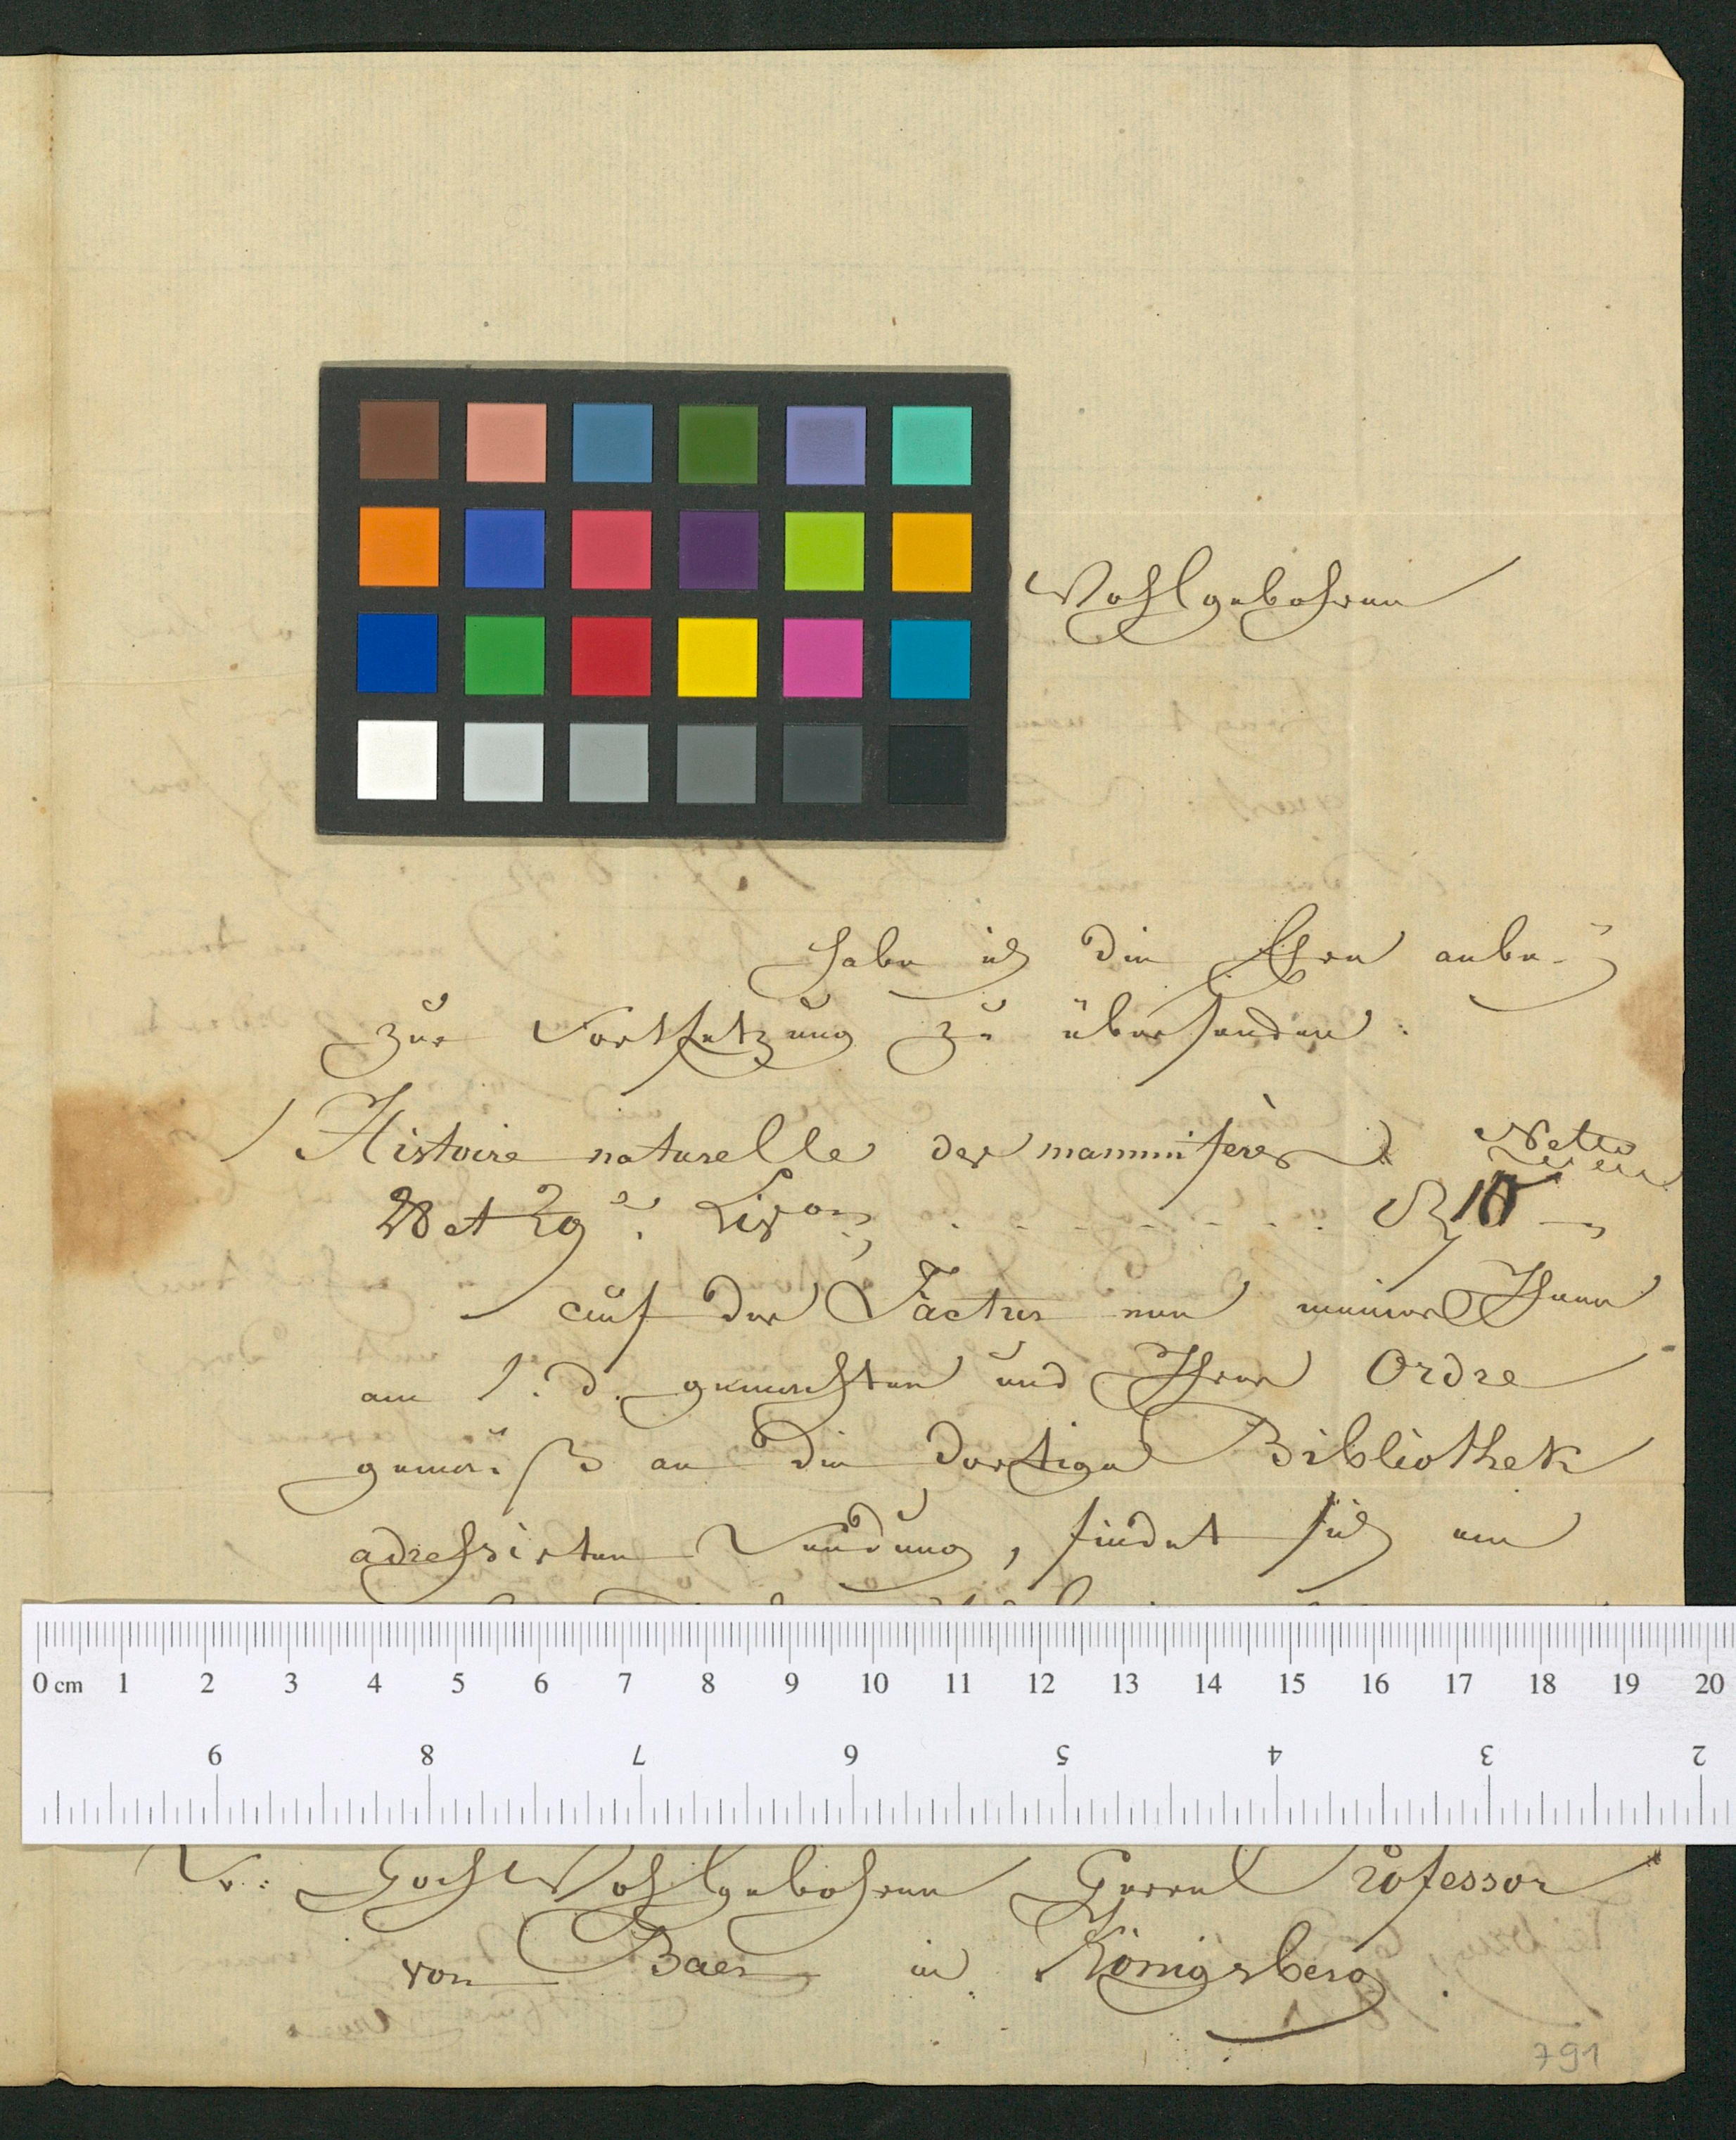 Wohlgebohren
habe ich die Ehre anbei
zur Fortsetzung zu übersenden:
1 Histoire naturelle des mammifères Netto
28 et 29e Livons . . . . . . . . 10 —
auf der Factur von meiner Ihnen
am 1. d. gemachten und Ihrer Ordre
gemäß an die dortige Bibliothek
adressirten Sendung, findet sich ein
0 cm 1 2 3 4 5 6 7 8 9 10 11 12 13 14 15 16 17 18 19 20
9 8 7 6 5 4 3 2
Sr: HochWohlgebohren Herrn Professor
von Baer in Königsberg.
791